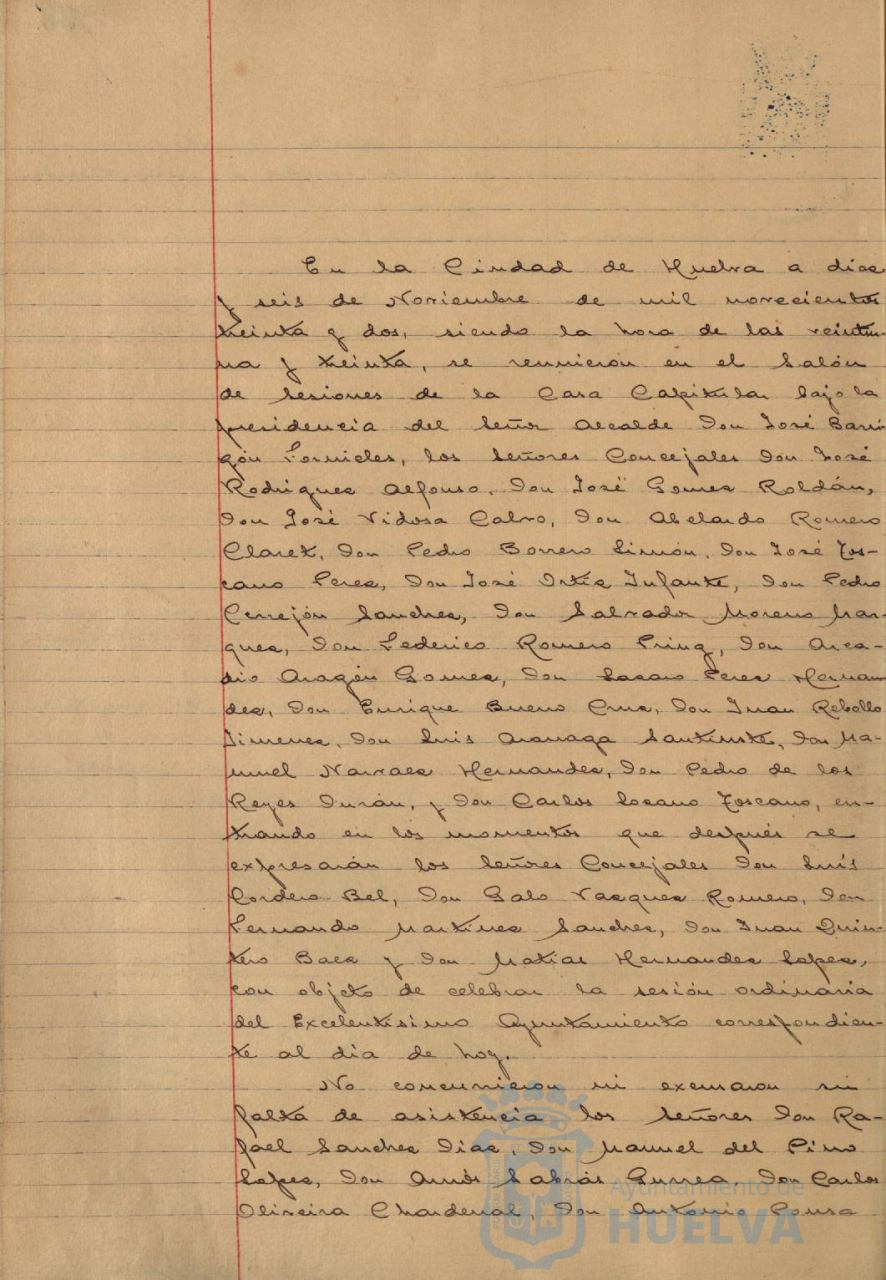 En la Ciudad de Huelva a diez
y seis de Noviembre de mil novecientos
treinta y dos, siendo la hora de las veintiu-
na y treinta, se reunieron en el Salón
de Sesiones de la Casa Capitular bajo la
presidencia del Señor Alcalde Don José Barri-
gón Fornieles, los Señores Concejales Don José
Rodriguez Alfonso, Don José Gomez Roldán,
Don José Vidosa Calvo, Don Abelardo Romero
Claret, Don Pedro Borrero Limón, Don José Tos-
cano Perez, Don José Ortiz Infante, Don Pedro
Cerrejón Sanchez, Don Salvador Moreno Mar-
quez, Don Federico Romero Prinz, Don Arca-
dio Aragón Gomez, Don Lazaro Perez Hernan
dez, Don Enrique Bueno Cruz, Don Juan Rebollo
Jimenez, Don Luis Aranaga Santiuste, Don Ma-
nuel Narvaez Hernandez, Don Pedro de los
Reyes Durán, y Don Carlos Lozano Toscano, en-
trando en los momentos que después se
expresarán los Señores Concejales Don Luís
Cordero Bel, Don Galo Vazquez Romero, Don
Fernando Martinez Sanchez, Don Juan Quin-
tero Baez y Don Matias Hernandez Lopez,
con objeto de celebrar la sesión ordinaria
del Excelentisimo Ayuntamiento correspondien-
te al dia de hoy.
No concurrieron ni excusaron su
falta de asistencia los Señores Don Ra-
fael Sanchez Diaz, Don Manuel del Pino
Lopez, Don Amós Sabrás Gurrea, Don Carlos
Oliveira Chardenal, Don Antonio Pousa
Ayuntamiento de
HUELVA